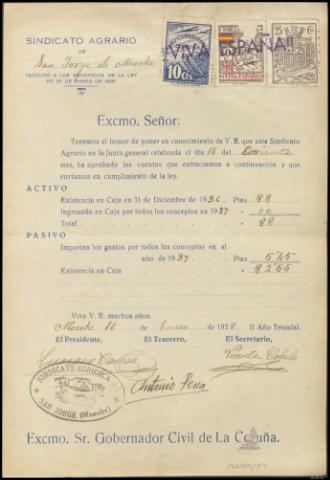 SINDICATO AGRARIO
DE
San Jorge de Moeche
(ACOGIDO A LOS BENEFICIOS DE LA LEY
DE 28 DE ENERO DE 1906)
10 Cts
¡VIVA ESPAÑA!!
VIVA ESPAÑA
25
Excmo. Señor:
Tenemos el honor de poner en conocimiento de V. E. que este Sindicato
Agrario en la Junta general celebrada el día 16 del Corriente
mes, ha aprobado las cuentas que extractamos a continuación y que
enviamos en cumplimiento de la ley.
ACTIVO
Existencia en Caja en 31 de Diciembre de 1936. Ptas. 88
Ingresado en Caja por todos los conceptos en 1937 00
Total 88
PASIVO
Importan los gastos por todos los conceptos en el
año de 1937. Ptas 5'45
Existencia en Caja 82'55
Viva V. E. muchos años.
Moeche 16 de Enero de 1938 II Año Triunfal.
El Presidente, El Tesorero, El Secretario,
Antonio Pena
Vicente
SINDICATO AGRICOLA
SAN JORGE (Moeche)
Excmo. Sr. Gobernador Civil de La Coruña.